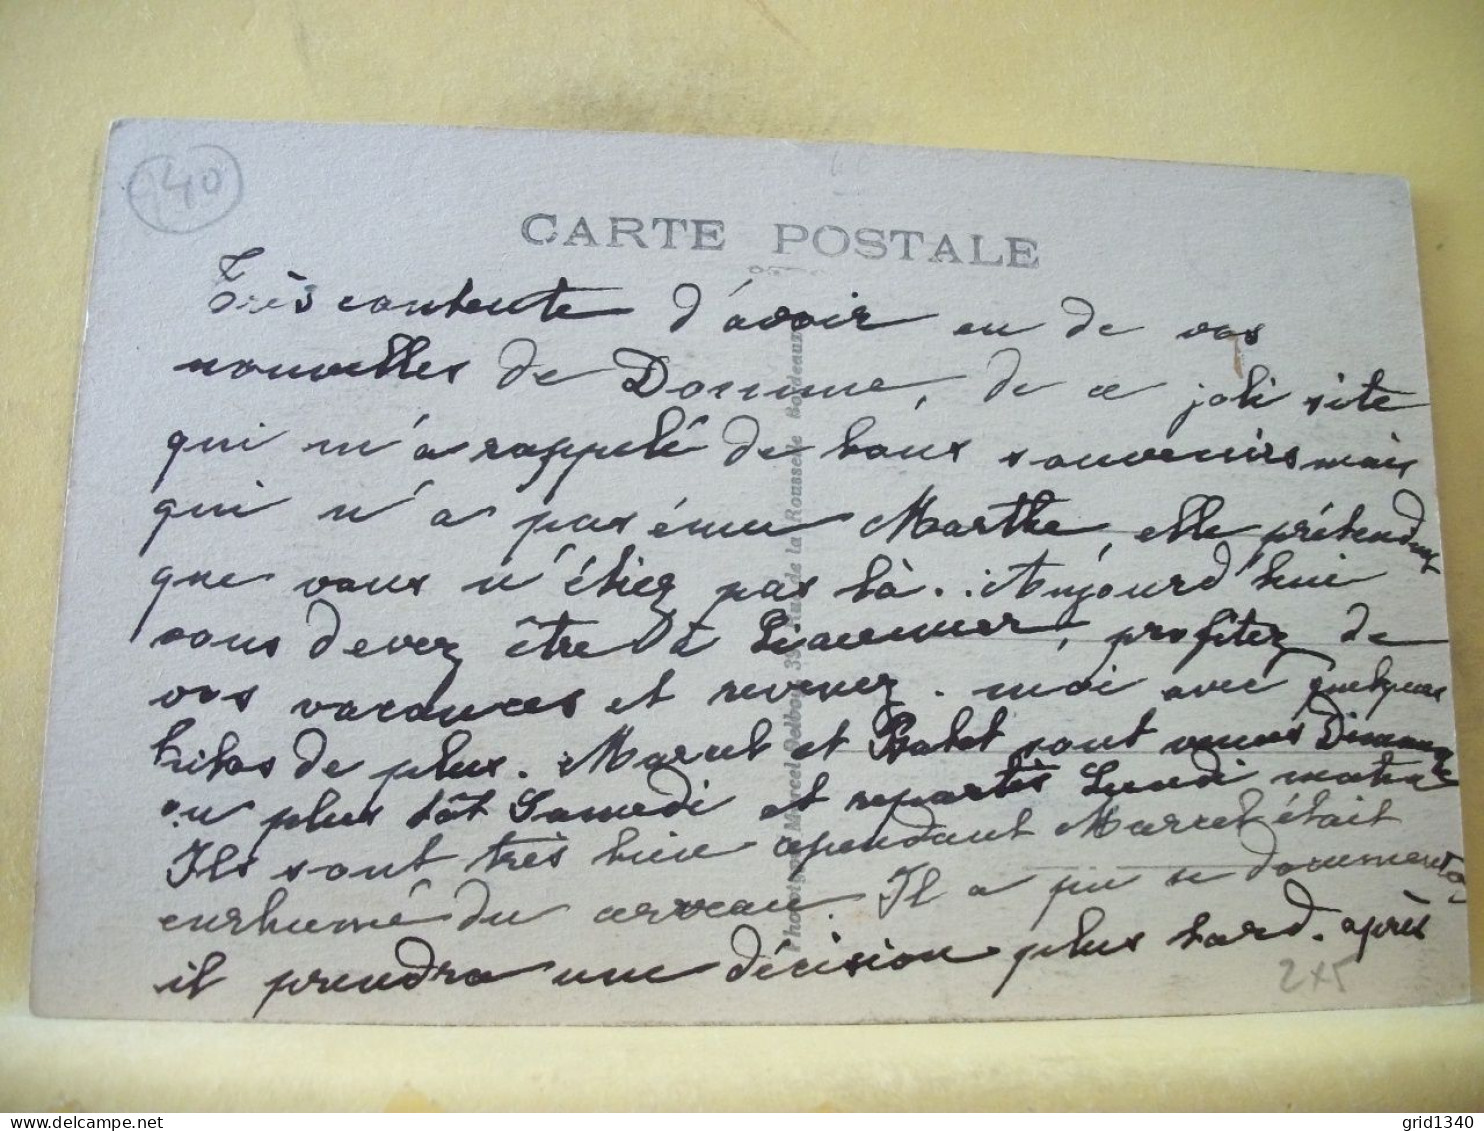 40
CARTE POSTALE
Très contente d'avoir eu de vos
nouvelles de Domme, de ce joli site
qui m'a rappelé de bons souvenirs mais
qui n'a pas ému Marthe, elle prétendue
que vous n'étiez pas là. Aujourd'hui
vous devez être à, profitez de
vos vacances et revenez moi avec quelques
kilos de plus. Marcel et sont venus Dimanche
ou plus tôt Samedi et repartis Lundi matin
Ils sont très bien cependant Marcel était
enrhumé du cerveau. Il a pu se documenter
il prendra une décision plus tard. après
2x5
Phototypie Marcel Delboy, 39, Rue de la Rousselle Bordeaux
grid1340